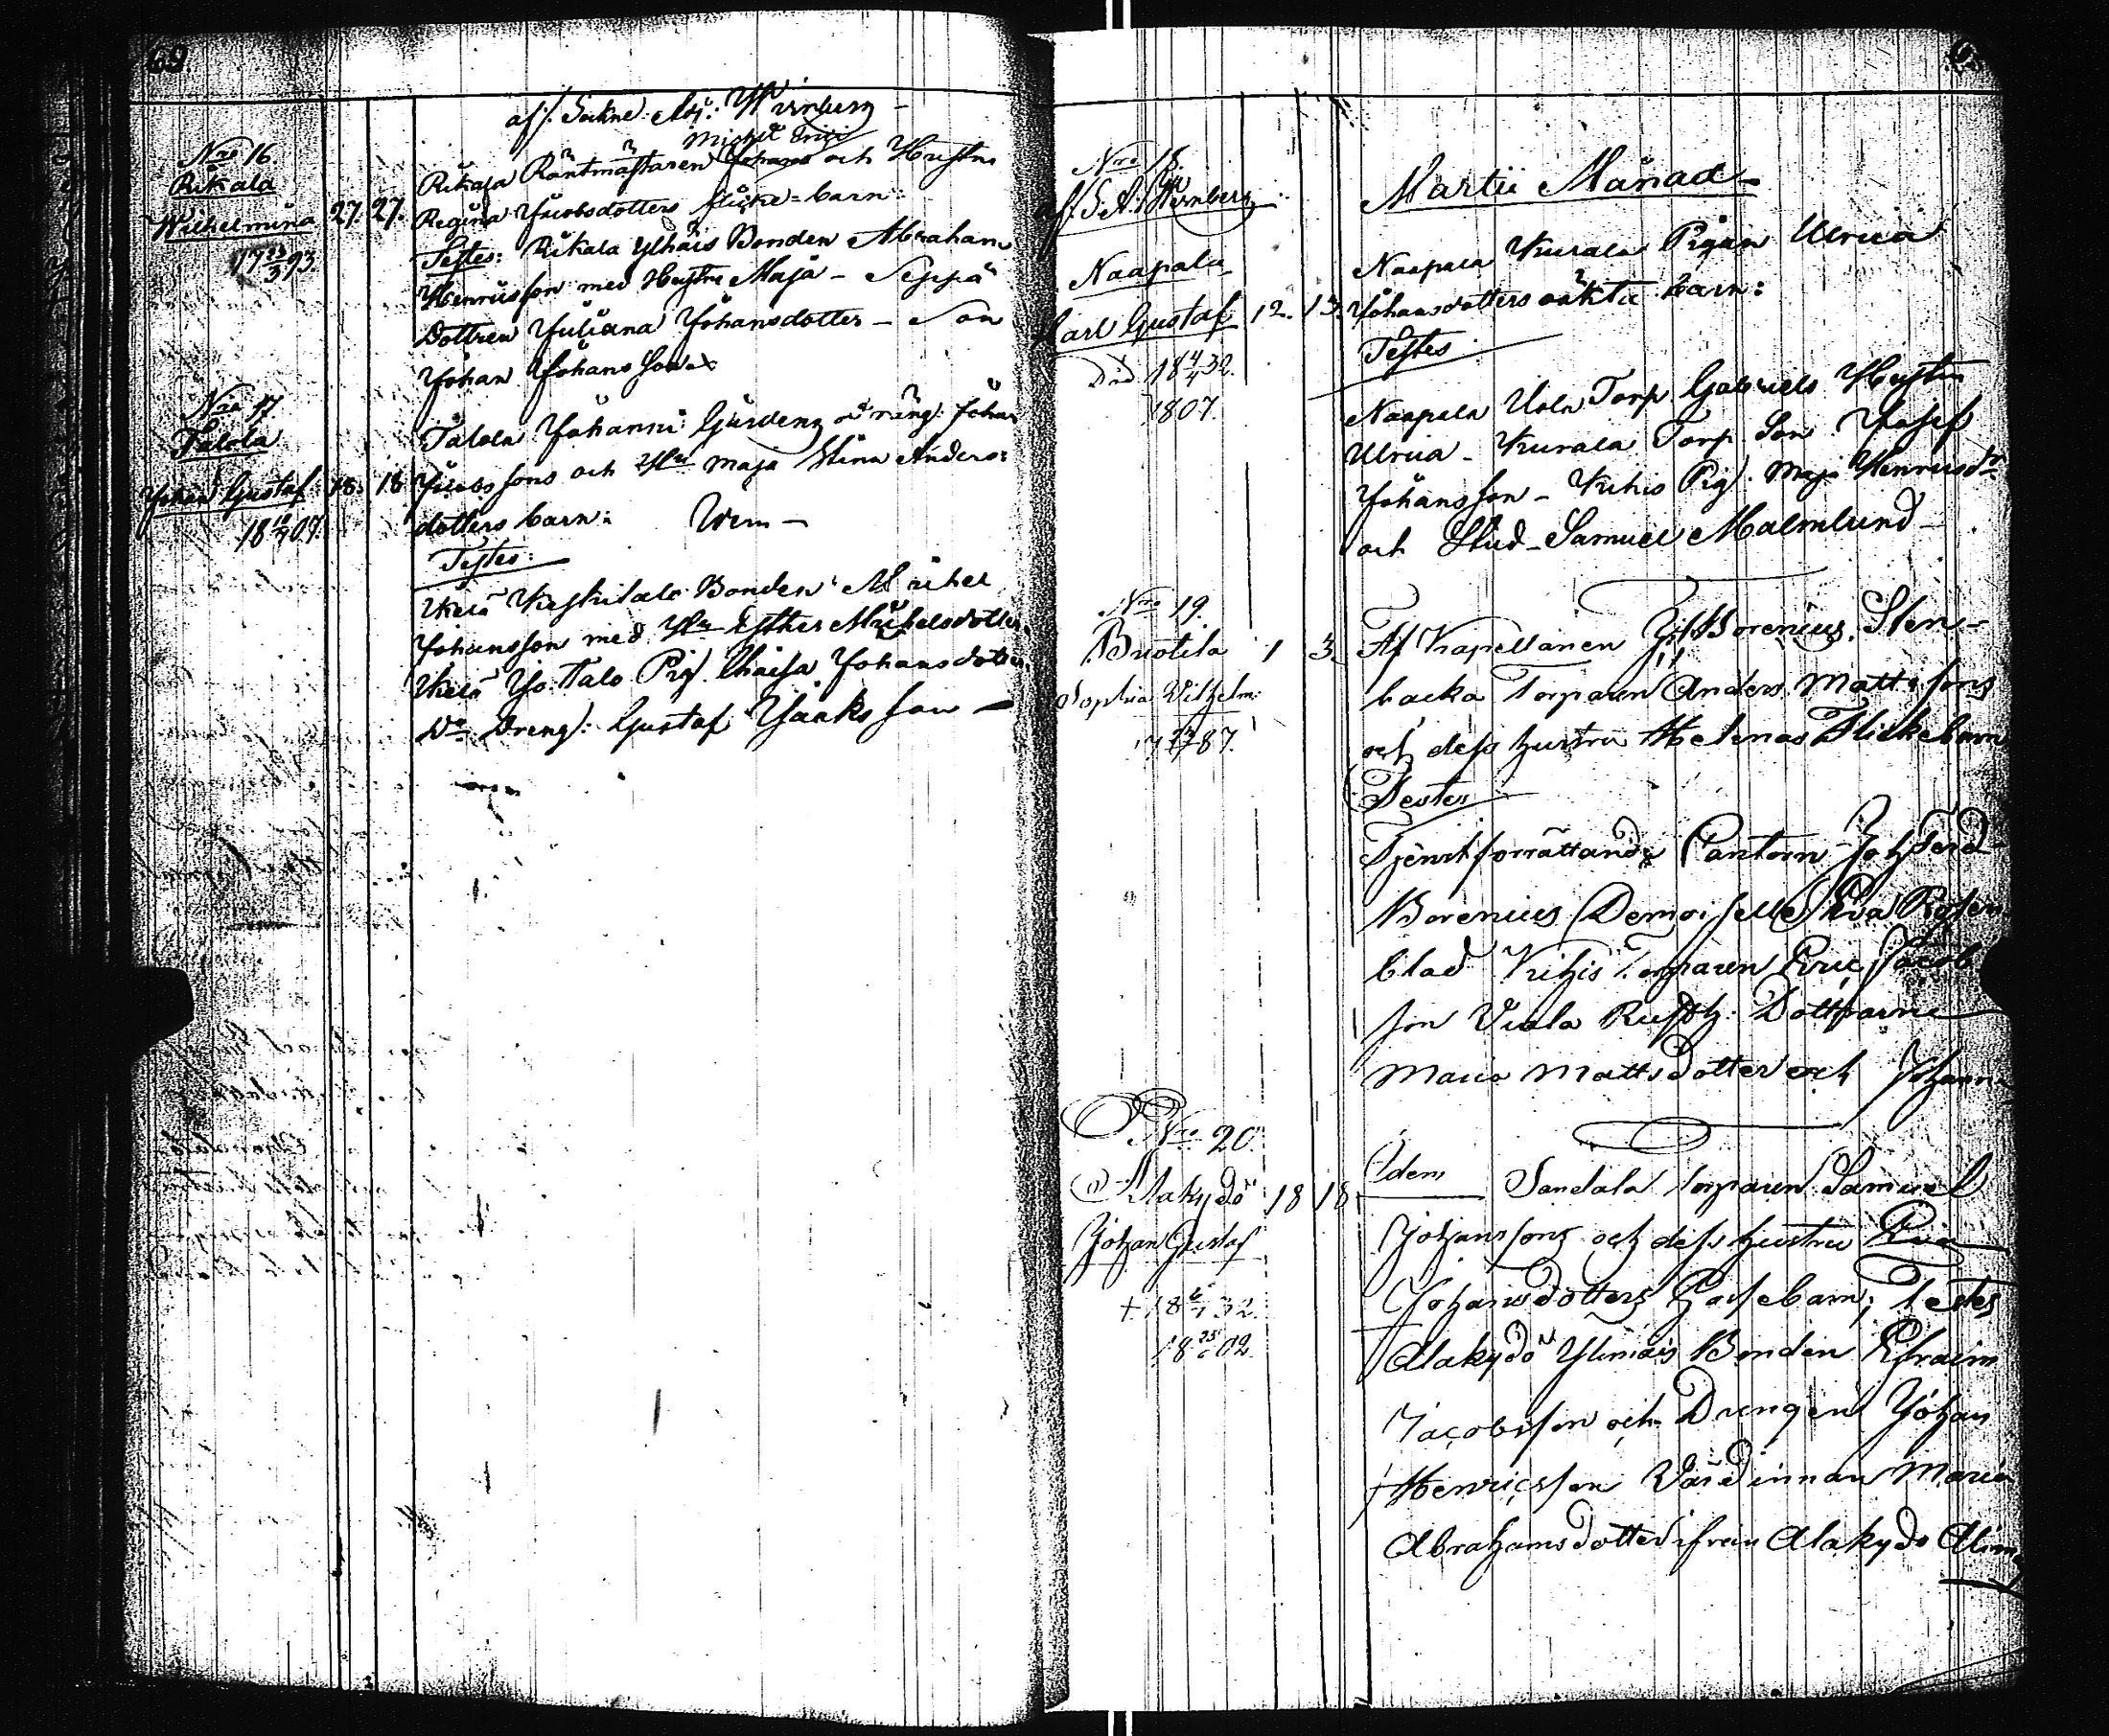 69
af S. Adj. Wirnberg
Michel Erics
Nro 16
Rikala
Wilhelmina 27. 27.
17 3 93.
Rikala Räntmästaren Johans och Hustru
Regina Jacobsdotters flicke-barn:
Testes: Rikala Ylhäis Bonden Abraham
Henricsson med Hustru Maja - Seppä
Dottren Juliana Johansdotter - Son
Johan Johansson
Nro 17
Talola
Johan Gustaf 18. 18
18 07.
Talola Johanni Johan
Jacobssons och Hu Maja Stina Anders
dotters barn:
Testes:
Keskitalo Bonden Michel
Johansson med Hu Esther Michelsdotter
Yli Talo Pig. Caisa Johansdotter
Do Dreng: Gustaf Jaaksson
Nro 18
af S. A. Wirnberg
Naapala
Carl Gustaf 12. 13.
Död 18 4/4 32.
1807.
Martii Månad
Naapala Kurala Pigan Ulrica
Johansdotters oäkta barn:
Testes
Naapala Torp Gabriels Hustru
Ulrica - Kurala Torp. Son Josef
Johansson - Kihis Pig. Maja Henricsdr
och Stud. Samuel Malmlund
Nro 19.
Briotila 1 3.
Sophia Vilhelm:
17 87.
Af Kapellanen Borenius. Sten-
backa Torparen Anders Mattssons
och dess hustru Helenas Flickebarn
Testes
Tjenstförrättande Cantorn Joh Ferd
Borenius Demoiselle Eva Rosen
blad Kihis Torparen Eric Jacob
son Viala Rusth: Döttrarne
Maria Mattsdotter och Johanna
Nro 20.
Alakydö 18 18
Johan Gustaf
+ 18 6 32.
18 25 02.
Idem Sandala torparen Samuel
Johanssons och dess hustru Eva
Johansdotters Gossebarn; Testes
Alakydö Ylimäis Bonden Efraim
Jacobsson och Drengen Johan
Henricsson Värdinnan Maria
Abrahamsdotter ifrån Alakydö